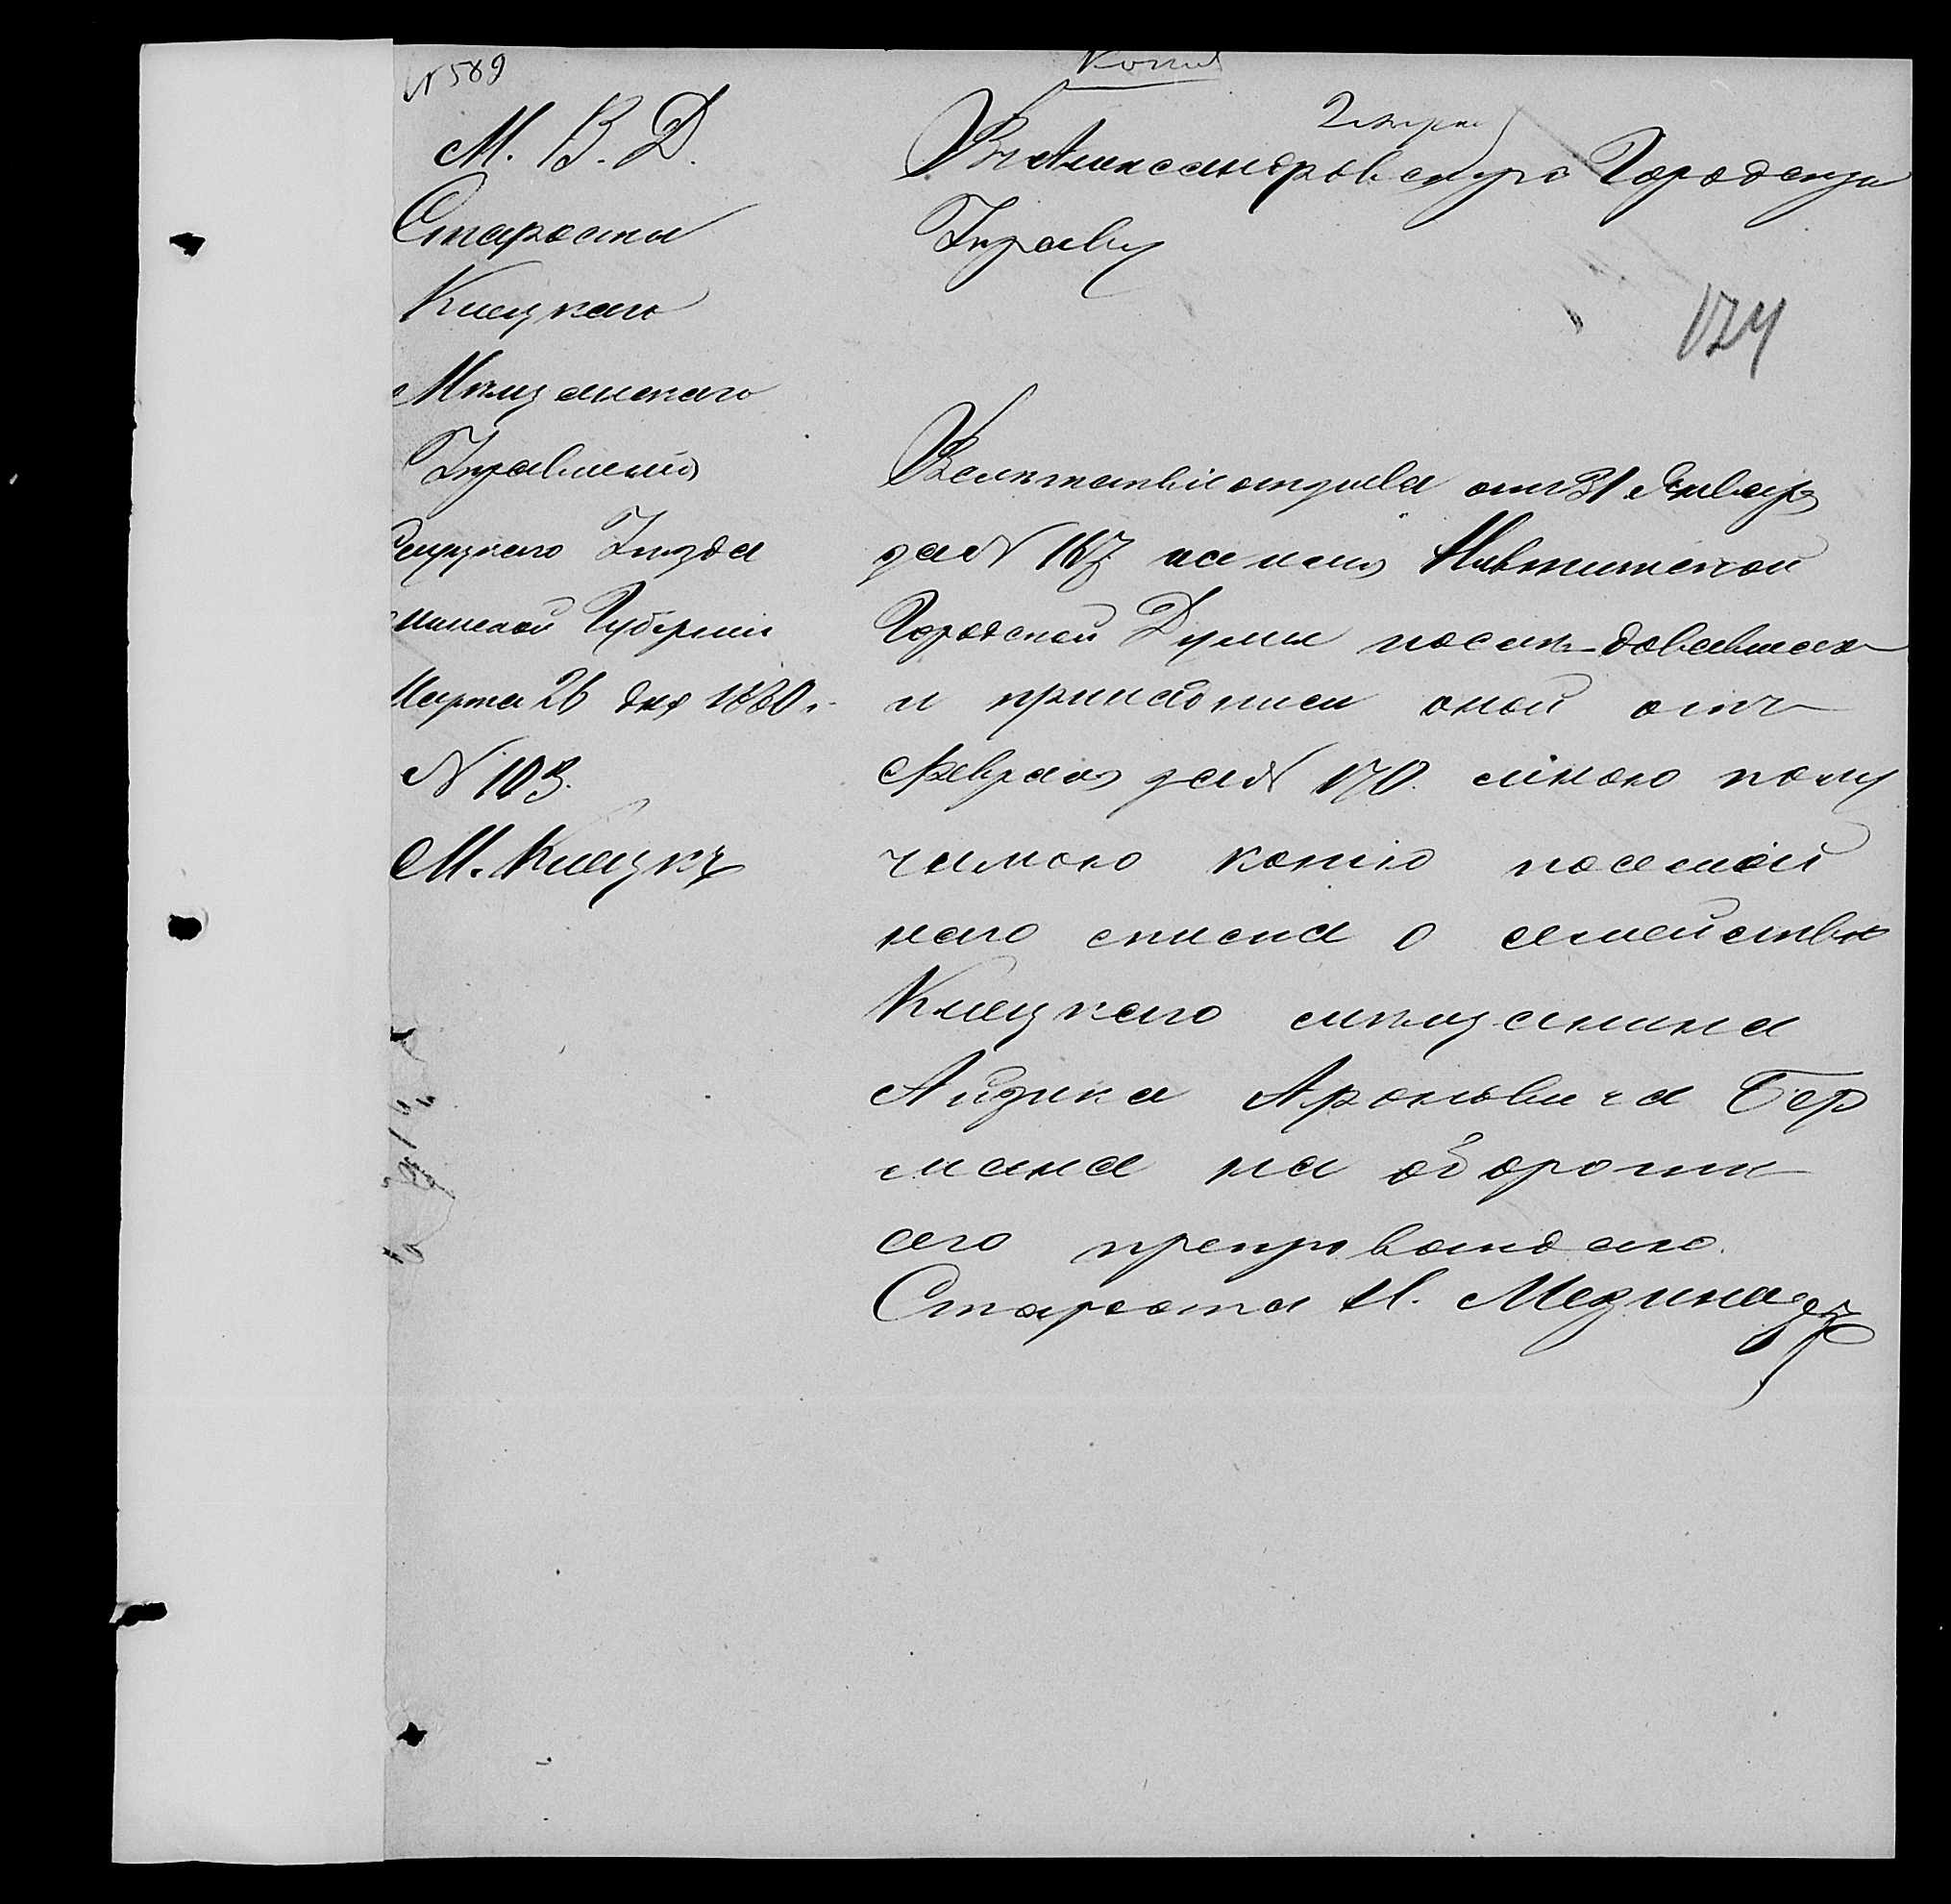 N 589
Копія
М. В. Д.
Старосты
Клецкаго
Мѣщанскаго
Управленія
Слуцкаго Уѣзда
Минской Губерніи
Марта 26 дня 1880 г.
N 103.
М. Клецкъ
Въ Александровскую Городскую
Управу
174
Вслѣдствіе отзыва отъ 31 Января
за N 167 на имя
Городской Думы послѣдовавшаго
и пріписи оной отъ
Февраля за N 170. мною полу
чимою копію посемей
наго списка о семействѣ
Клецкаго мѣщанина
Айзика Ароновича Бер
мана на оборотѣ
сего препровождаю.
Староста И.